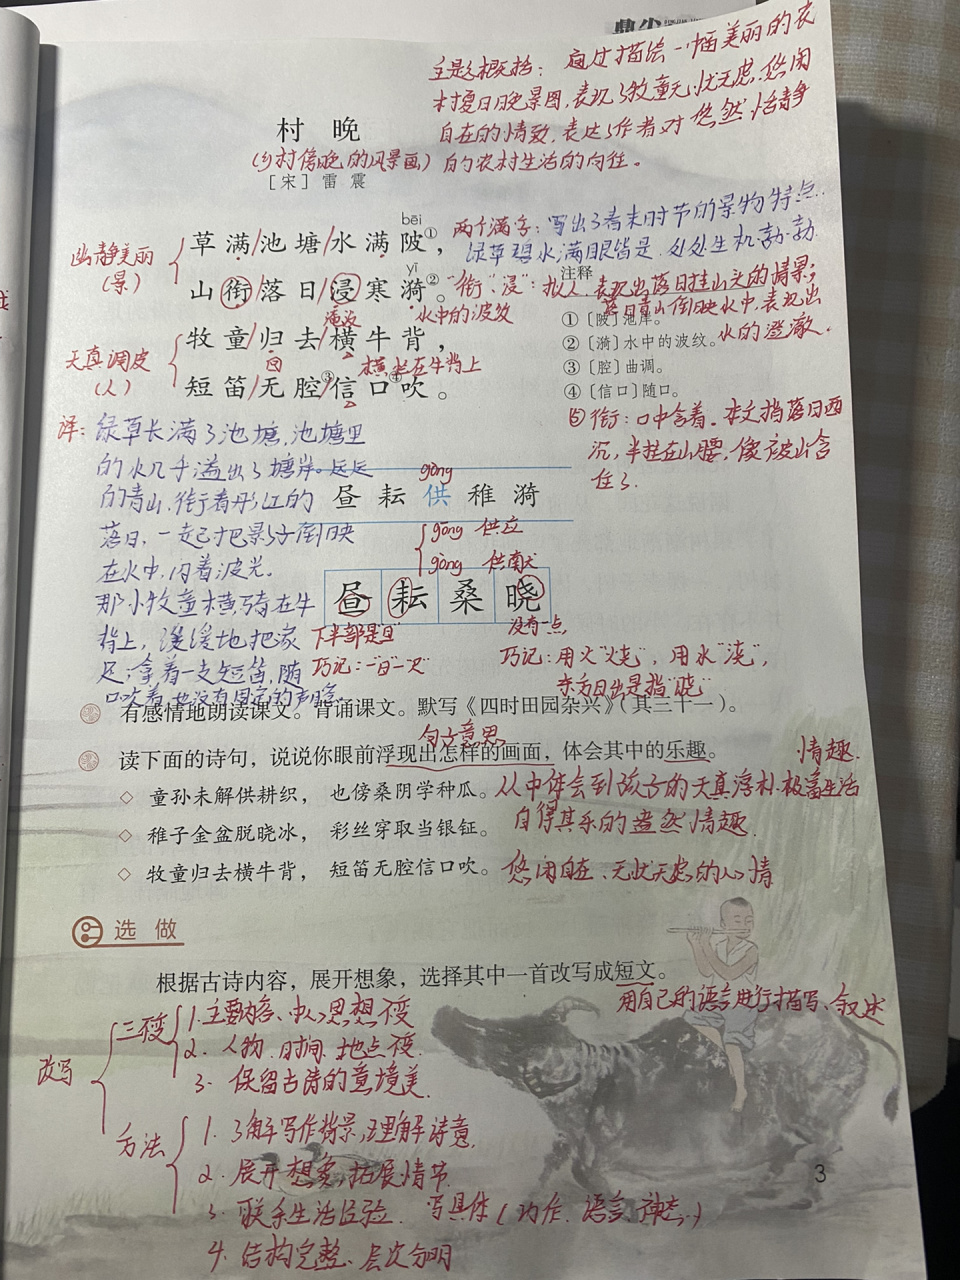 鼎尖
主题概括：通过描绘一幅美丽的农
村夏日晚景图，表现了牧童无忧无虑、悠闲
自在的情致，表达了作者对悠然恬静
的农村生活的向往。
村晚
（乡村傍晚的风景画）
［宋］雷震
bēi
草满/池塘/水满陂①，
两个满字：写出了春末时节的景物特点。
绿草碧水满眼皆是，处处生机勃勃
幽静美丽
（景）
yī
山衔/落日/浸寒漪②。
"衔"、"浸"：拟人，表现出落日挂山头的情景；
落日青山倒映水中，表现出
水的澄澈．
淹没
水中的波纹
注释
①〔陂〕池岸。
②〔漪〕水中的波纹。
③〔腔〕曲调。
④〔信口〕随口。
⑤衔：口中含着。本文指落日西
沉，半挂在山腰，像被山含
住了．
天真调皮
（人）
牧童/归去/横牛背，
回
横坐在牛背上
短笛/无腔③/信口④吹。
译：绿草长满了池塘，池塘里
的水几乎溢出了塘岸。远远
的青山，衔着彤红的
落日，一起把影子倒映
在水中，闪着波光。
那小牧童横骑在牛
背上，缓缓地把家
还；拿着一支短笛，随
口吹着，也没有固定的声腔。
gōng
昼耘供稚漪
gōng 供应
gòng
昼耘桑晓
下半部是"旦"
巧记："一日一尺"
没有一点
巧记：用火"烧"，用水"浇"，
东方日出是指"晓"
有感情地朗读课文。背诵课文。默写《四时田园杂兴》（其三十一）。
句子意思
读下面的诗句，说说你眼前浮现出怎样的画面，体会其中的乐趣。
情趣．
◇ 童孙未解供耕织，也傍桑阴学种瓜。
从中体会到孩子的天真淳朴、极富生活
◇ 稚子金盆脱晓冰，彩丝穿取当银钲。
自得其乐的盎然情趣．
◇ 牧童归去横牛背，短笛无腔信口吹。
悠闲自在、无忧无虑的心情
选做
根据古诗内容，展开想象，选择其中一首改写成短文。
用自己的语言进行描写、叙述
改写
三不变
1．主要内容、中心思想不变
2．人物．时间．地点不变．
3．保留古诗的意境美．
方法
1．了解写作背景，理解诗意．
2．展开想象，拓展情节．
3．联系生活经验．写具体（动作．语言．神态…）
4．结构完整、层次分明
3